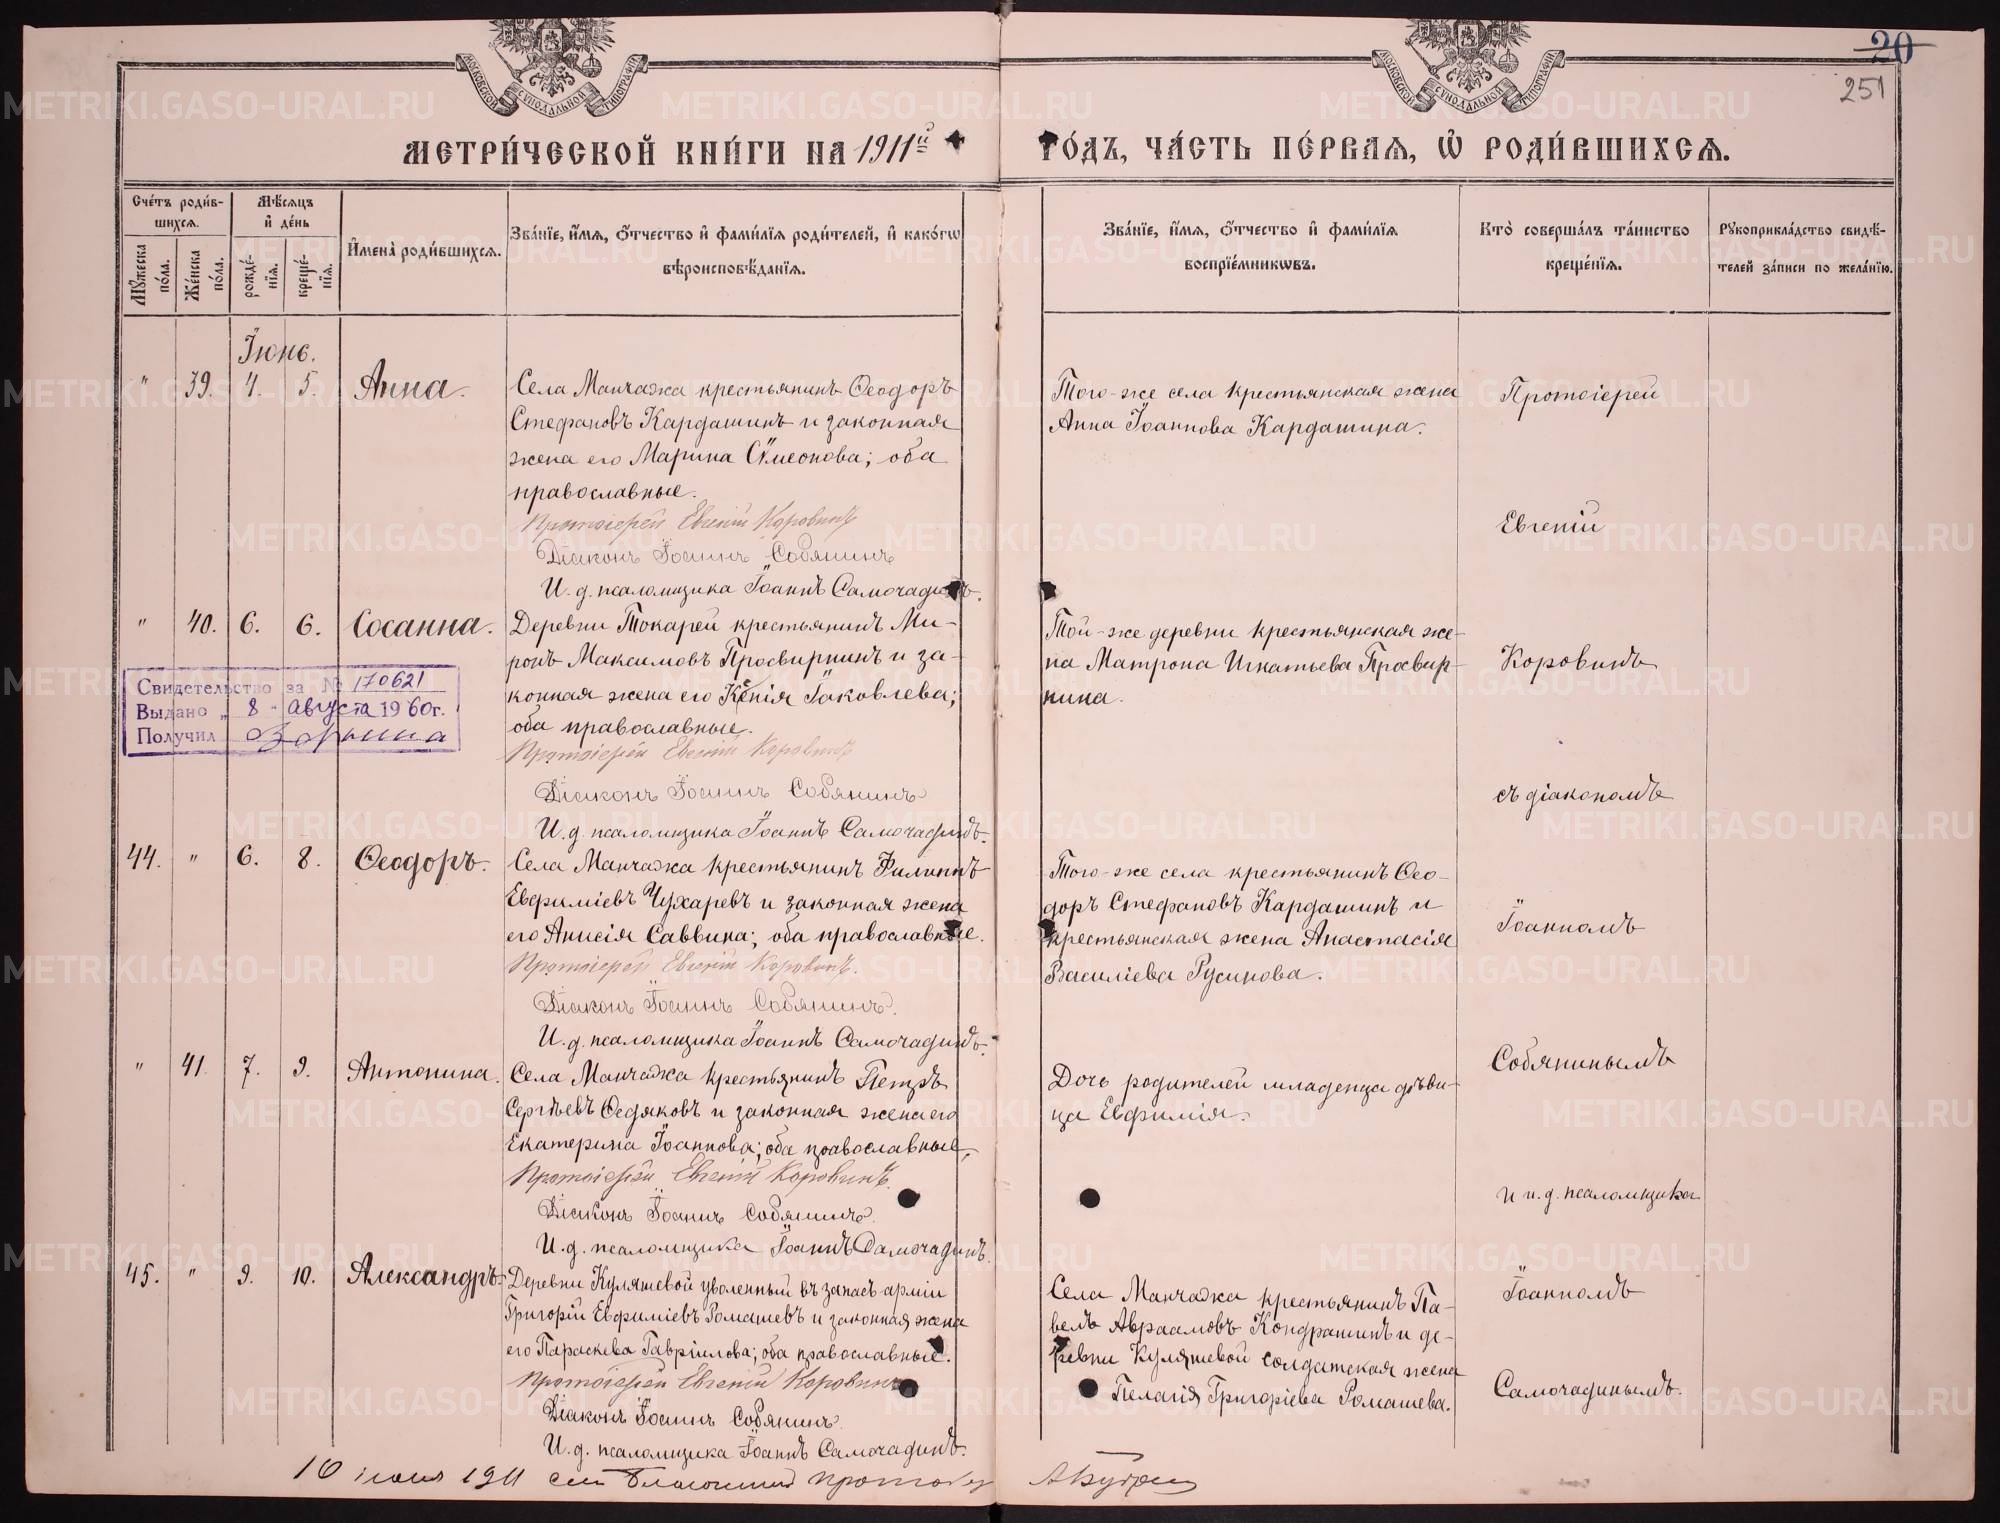 МОСКОВСКОЙ СѴНОДАЛЬНОЙ ТИПОГРАФІИ
МОСКОВСКОЙ СѴНОДАЛЬНОЙ ТИПОГРАФІИ
20
251
МЕТРИ́ЧЕСКОЙ КНИ́ГИ НА 1911й
ГО́ДЪ, ЧА́СТЬ ПЕ́РВАЯ, Ѡ РОДИ́ВШИХСЯ.
Сче́тъ роди́в-
шихся.
Мꙋжеска по́ла.
Же́нска по́ла.
Мѣ́сяцъ
и де́нь
рожде́-
нїя.
креще́-
нїя.
Имена̀ роди́вшихся.
Зва́нїе, и́мя, ѻ́тчество и фами́лїя роди́телей, и како́гѡ
вѣроисповѣ́данїя.
Зва́нїе, и́мя, ѻ́тчество и фами́лїя
воспрїе́мникѡвъ.
Кто̀ соверша́лъ та́инство
креще́нїя.
Рꙋкоприкла́дство свидѣ́-
телей за́писи по жела́нїю.
Іюнь.
" 39. 4. 5. Анна.
Села Манчажа крестьянинъ Ѳеодоръ
Стефановъ Кардашинъ и законная
жена его Марина Сѵмеонова; оба
православные.
Протоіерей Евгеній Коровинъ
Діаконъ Іоаннъ Собянинъ
И. д. псаломщика Іоаннъ Самочадинъ.
Того-же села крестьянская жена
Анна Іоаннова Кардашина.
Протоіерей
Евгеній
" 40. 6. 6. Сосанна.
Деревни Токарей крестьянинъ Ми-
ронъ Максимовъ Просвирнинъ и за-
конная жена его Ксенія Іаковлева;
оба православные.
Протоіерей Евгеній Коровинъ
Діаконъ Іоаннъ Собянинъ
И. д. псаломщика Іоаннъ Самочадинъ.
Той-же деревни крестьянская же-
на Матрона Игнатьева Просвир-
нина.
Коровинъ
съ діакономъ
Свидетельство за № 170621
Выдано „8" августа 1960г.
Получил Зорнина
44. " 6. 8. Ѳеодоръ.
Села Манчажа крестьянинъ Филиппъ
Евфиміевъ Чухаревъ и законная жена
его Анисія Саввина; оба православные.
Протоіерей Евгеній Коровинъ.
Діаконъ Іоаннъ Собянинъ.
И. д. псаломщика Іоаннъ Самочадинъ.
Того-же села крестьянинъ Ѳео-
доръ Стефановъ Кардашинъ и
крестьянская жена Анастасія
Василіева Русинова.
Іоанномъ
" 41. 7. 9. Антонина.
Села Манчажа крестьянинъ Петръ
Сергѣевъ Ѳедяковъ и законная жена его
Екатерина Іоаннова; оба православные.
Протоіерей Евгеній Коровинъ.
Діаконъ Іоаннъ Собянинъ.
И. д. псаломщика Іоаннъ Самочадинъ.
Дочь родителей младенца дѣви-
ца Евфимія.
Собянинымъ
и и. д. псаломщика
45. " 9. 10. Александръ.
Деревни Куляшевой уволенный въ запасъ арміи
Григорій Евфиміевъ Ромашевъ и законная жена
его Параскева Гавріилова; оба православные.
Протоіерей Евгеній Коровинъ
Діаконъ Іоаннъ Собянинъ.
И. д. псаломщика Іоаннъ Самочадинъ.
Села Манчажа крестьянинъ Па-
велъ Авраамовъ Кондрашинъ и де-
ревни Куляшевой солдатская жена
Пелагія Григоріева Ромашева.
Іоанномъ
Самочадинымъ.
10 июля 1911
METRIKI.GASO-URAL.RU